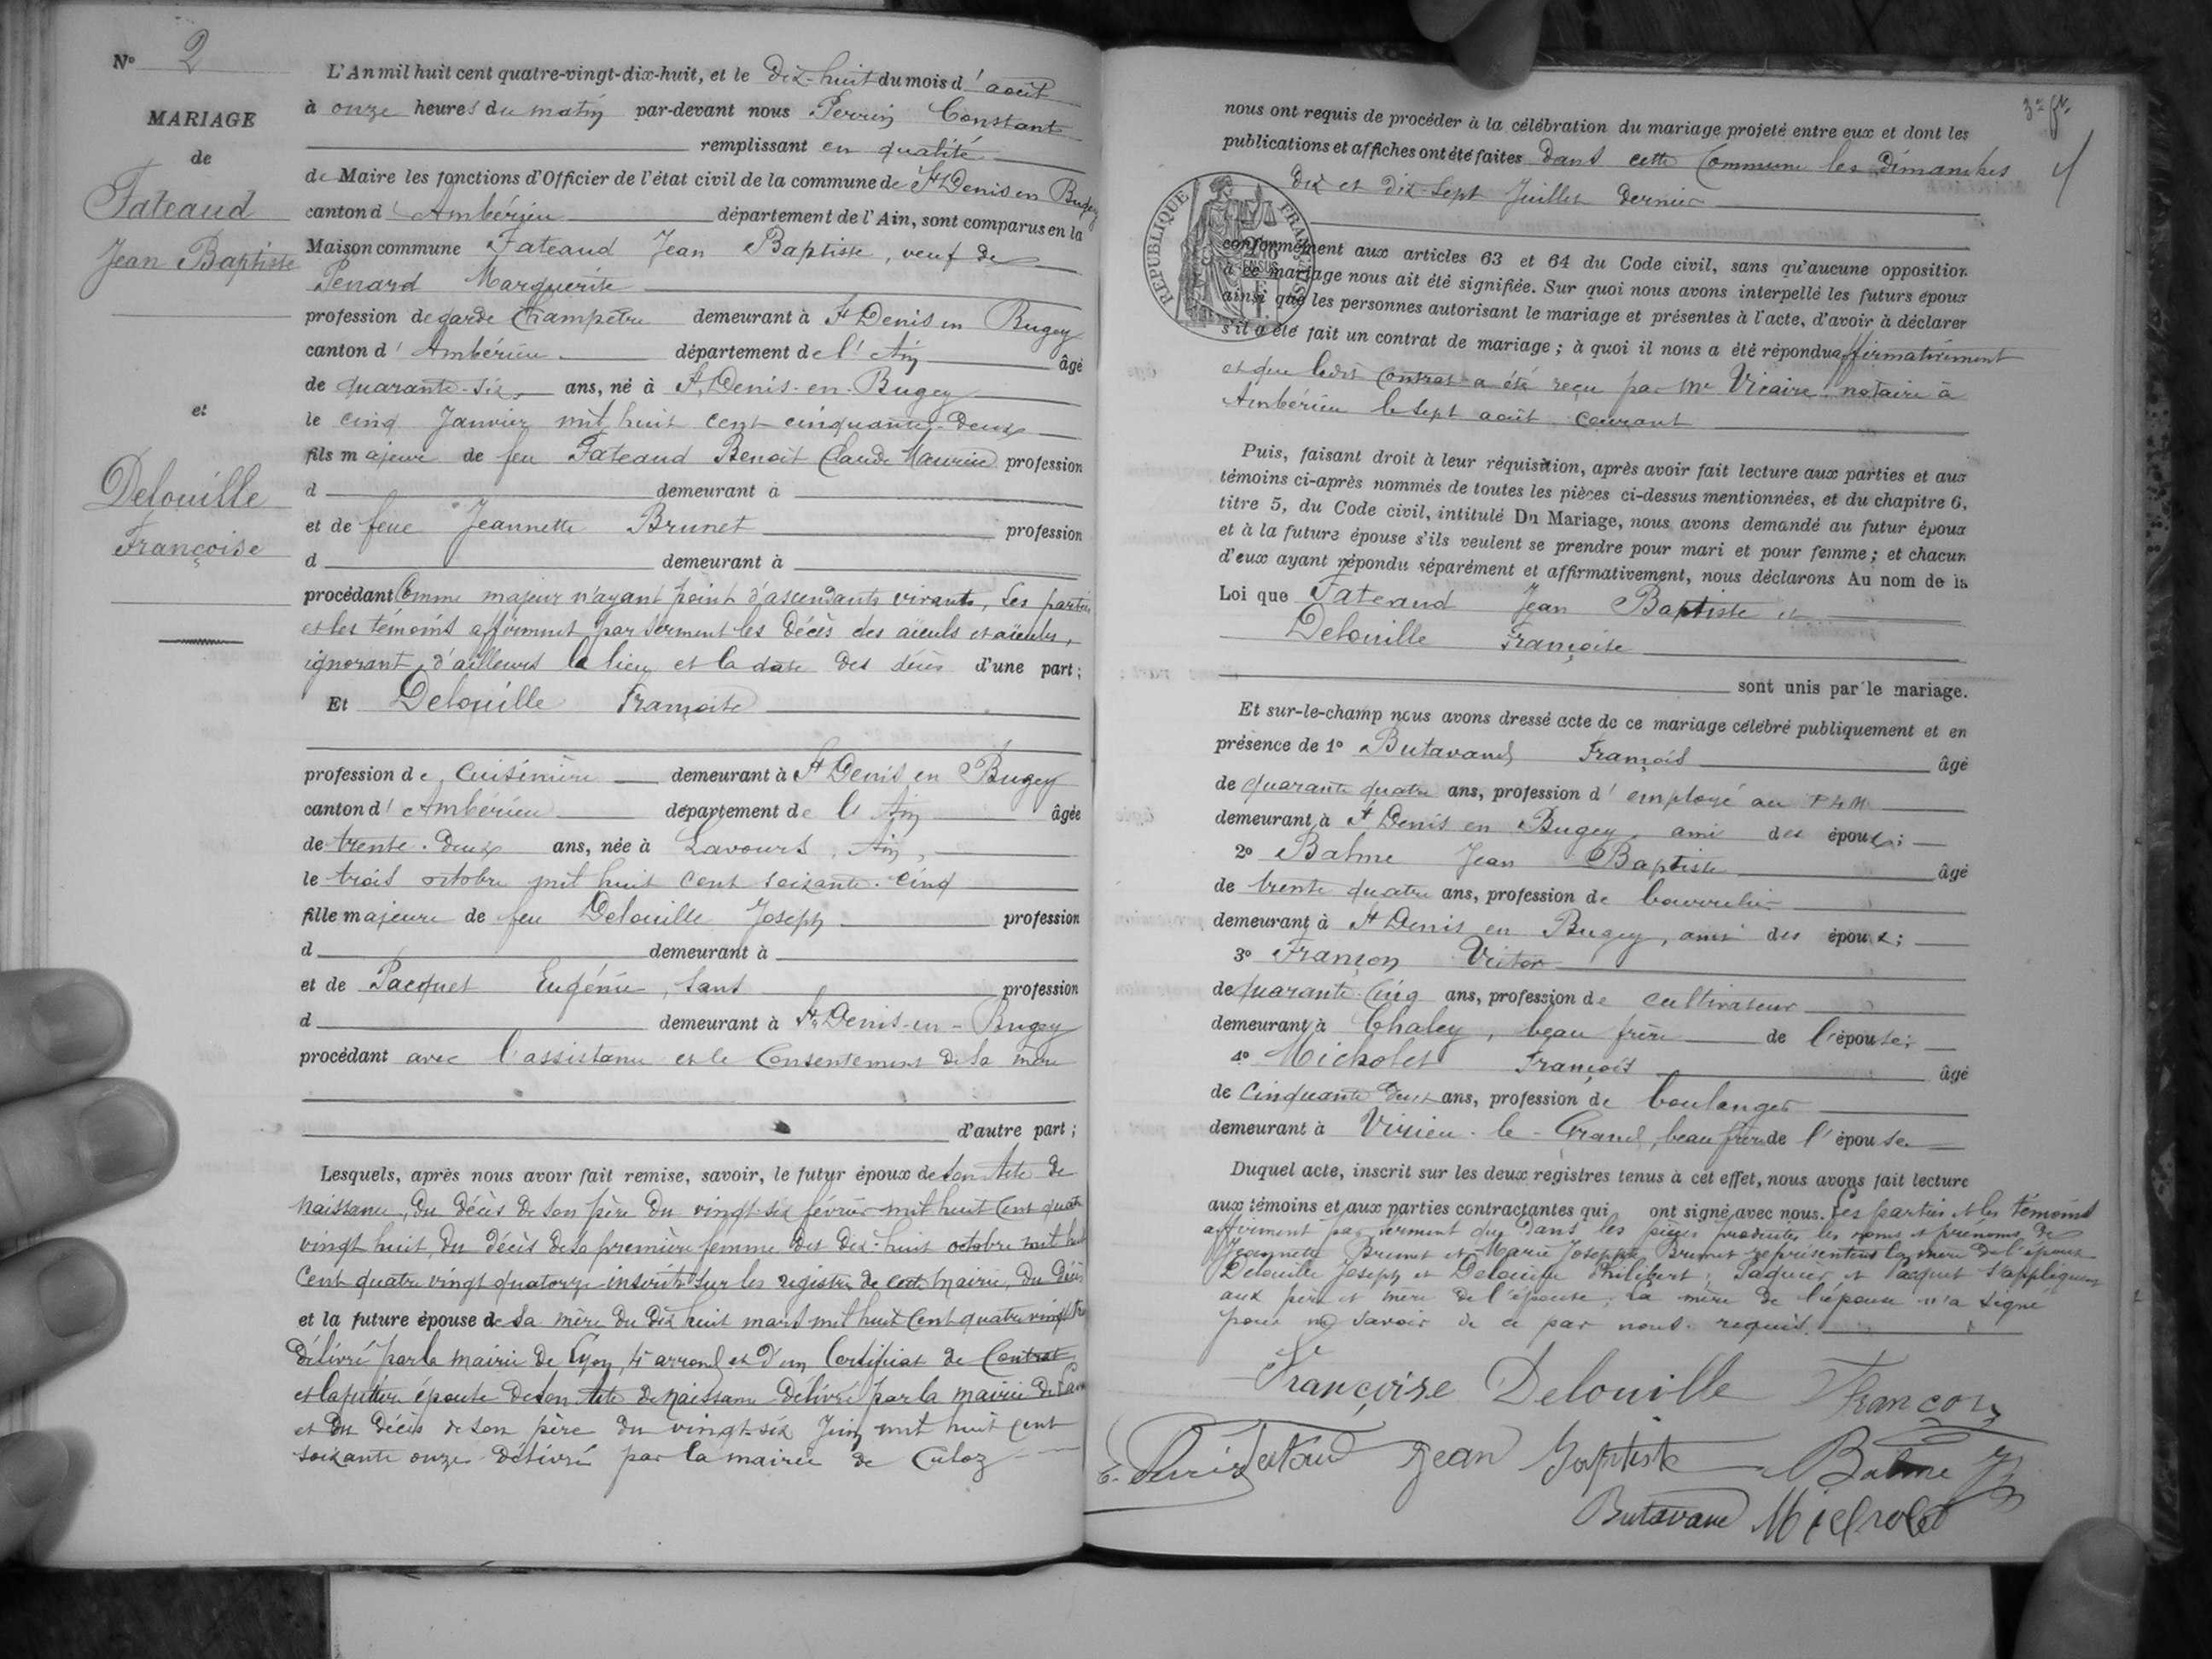 N° 2
MARIAGE
de
Fateaud
Jean Baptiste
et
Delouille
Françoise
L'An mil huit cent quatre-vingt-dix-huit, et le dix-huit du mois d'août
à onze heures du matin par-devant nous Perrin Constant
remplissant en qualité
de Maire les fonctions d'Officier de l'état civil de la commune de St Denis en Bugey
canton d'Ambérieu département de l'Ain, sont comparus en la
Maison commune Fateaud Jean Baptiste, veuf de
Penard Marguerite
profession de garde Champêtre demeurant à St Denis en Bugey
canton d'Ambérieu département de l'Ain âgé
de quarante-six ans, né à St Denis-en-Bugey
le cinq Janvier mil huit cent cinquante-deux
fils majeur de feu Fateaud Benoit Claude Maurice profession
d demeurant à
et de feue Jeannette Brunet profession
d demeurant à
procédant Comme majeur n'ayant point d'ascendants vivants, Les parties
et les témoins affirment par serment les décès des aïeuls et aïeules,
ignorant d'ailleurs le lieu et la date des décès d'une part;
Et Delouille Françoise
profession de Cuisinière demeurant à St Denis en Bugey
canton d'Ambérieu département de l'Ain âgée
de trente-deux ans, née à Lavours, Ain,
le trois octobre mil huit cent soixante-cinq
fille majeure de feu Delouille Joseph profession
d demeurant à
et de Pacquet Eugénie, sans profession
d demeurant à St Denis-en-Bugey
procédant avec l'assistance et le Consentement de sa mère
d'autre part;
Lesquels, après nous avoir fait remise, savoir, le futur époux de son Acte de
naissance, du décès de son père du vingt-six février mil huit cent quatre
vingt huit, du décès de sa première femme du dix-huit octobre mil huit
cent quatre vingt quatorze inscrits sur les registres de cette mairie, du décès
et la future épouse de sa mère du dix huit mars mil huit cent quatre vingt
délivré par la mairie de Lyon, 4e arrond et d'un Certificat de Contrat
et la future épouse de son Acte de naissance délivré par la mairie de
et du décès de son père du vingt-six Juin mil huit cent
soixante onze délivré par la mairie de Culoz
nous ont requis de procéder à la célébration du mariage projeté entre eux et dont les
publications et affiches ont été faites dans cette Commune les dimanches
dix et dix-sept Juillet dernier
RÉPUBLIQUE FRANÇAISE
conformément aux articles 63 et 64 du Code civil, sans qu'aucune opposition
à ce mariage nous ait été signifiée. Sur quoi nous avons interpellé les futurs époux
ainsi que les personnes autorisant le mariage et présentes à l'acte, d'avoir à déclarer
s'il a été fait un contrat de mariage; à quoi il nous a été répondu affirmativement
et que ledit contrat a été reçu par Me Vicaire notaire à
Ambérieu le sept août courant
Puis, faisant droit à leur réquisition, après avoir fait lecture aux parties et aux
témoins ci-après nommés de toutes les pièces ci-dessus mentionnées, et du chapitre 6,
titre 5, du Code civil, intitulé Du Mariage, nous avons demandé au futur époux
et à la future épouse s'ils veulent se prendre pour mari et pour femme; et chacun
d'eux ayant répondu séparément et affirmativement, nous déclarons Au nom de la
Loi que Fateaud Jean Baptiste et
Delouille Françoise
sont unis par le mariage.
Et sur-le-champ nous avons dressé acte de ce mariage célébré publiquement et en
présence de 1° Butavand François âgé
de quarante quatre ans, profession d'employé au PLM
demeurant à St Denis en Bugey, ami des époux;
2° Balme Jean Baptiste âgé
de trente quatre ans, profession de bourrelier
demeurant à St Denis en Bugey, ami des époux;
3° Françon Victor
de quarante-cinq ans, profession de cultivateur
demeurant à Chaley, beau frère de l'épouse;
4° Micholet François âgé
de cinquante deux ans, profession de boulanger
demeurant à Virieu-le-Grand, beau frère de l'épouse
Duquel acte, inscrit sur les deux registres tenus à cet effet, nous avons fait lecture
aux témoins et aux parties contractantes qui ont signé avec nous. Les parties et les témoins
affirment par serment que dans les pièces produites les noms et prénoms de
Jeannette Brunet et Marie Josephte Brunet représentent la mère de l'époux
Delouille Joseph et Delouille Philibert; Paquier et Pacquet s'appliquent
aux père et mère de l'épouse; la mère de l'épouse n'a signé
pour ne savoir de ce par nous requis.
Françoise Delouille Françon
C. Perrin Fateaud Jean Baptiste Balme
Butavand Micholet